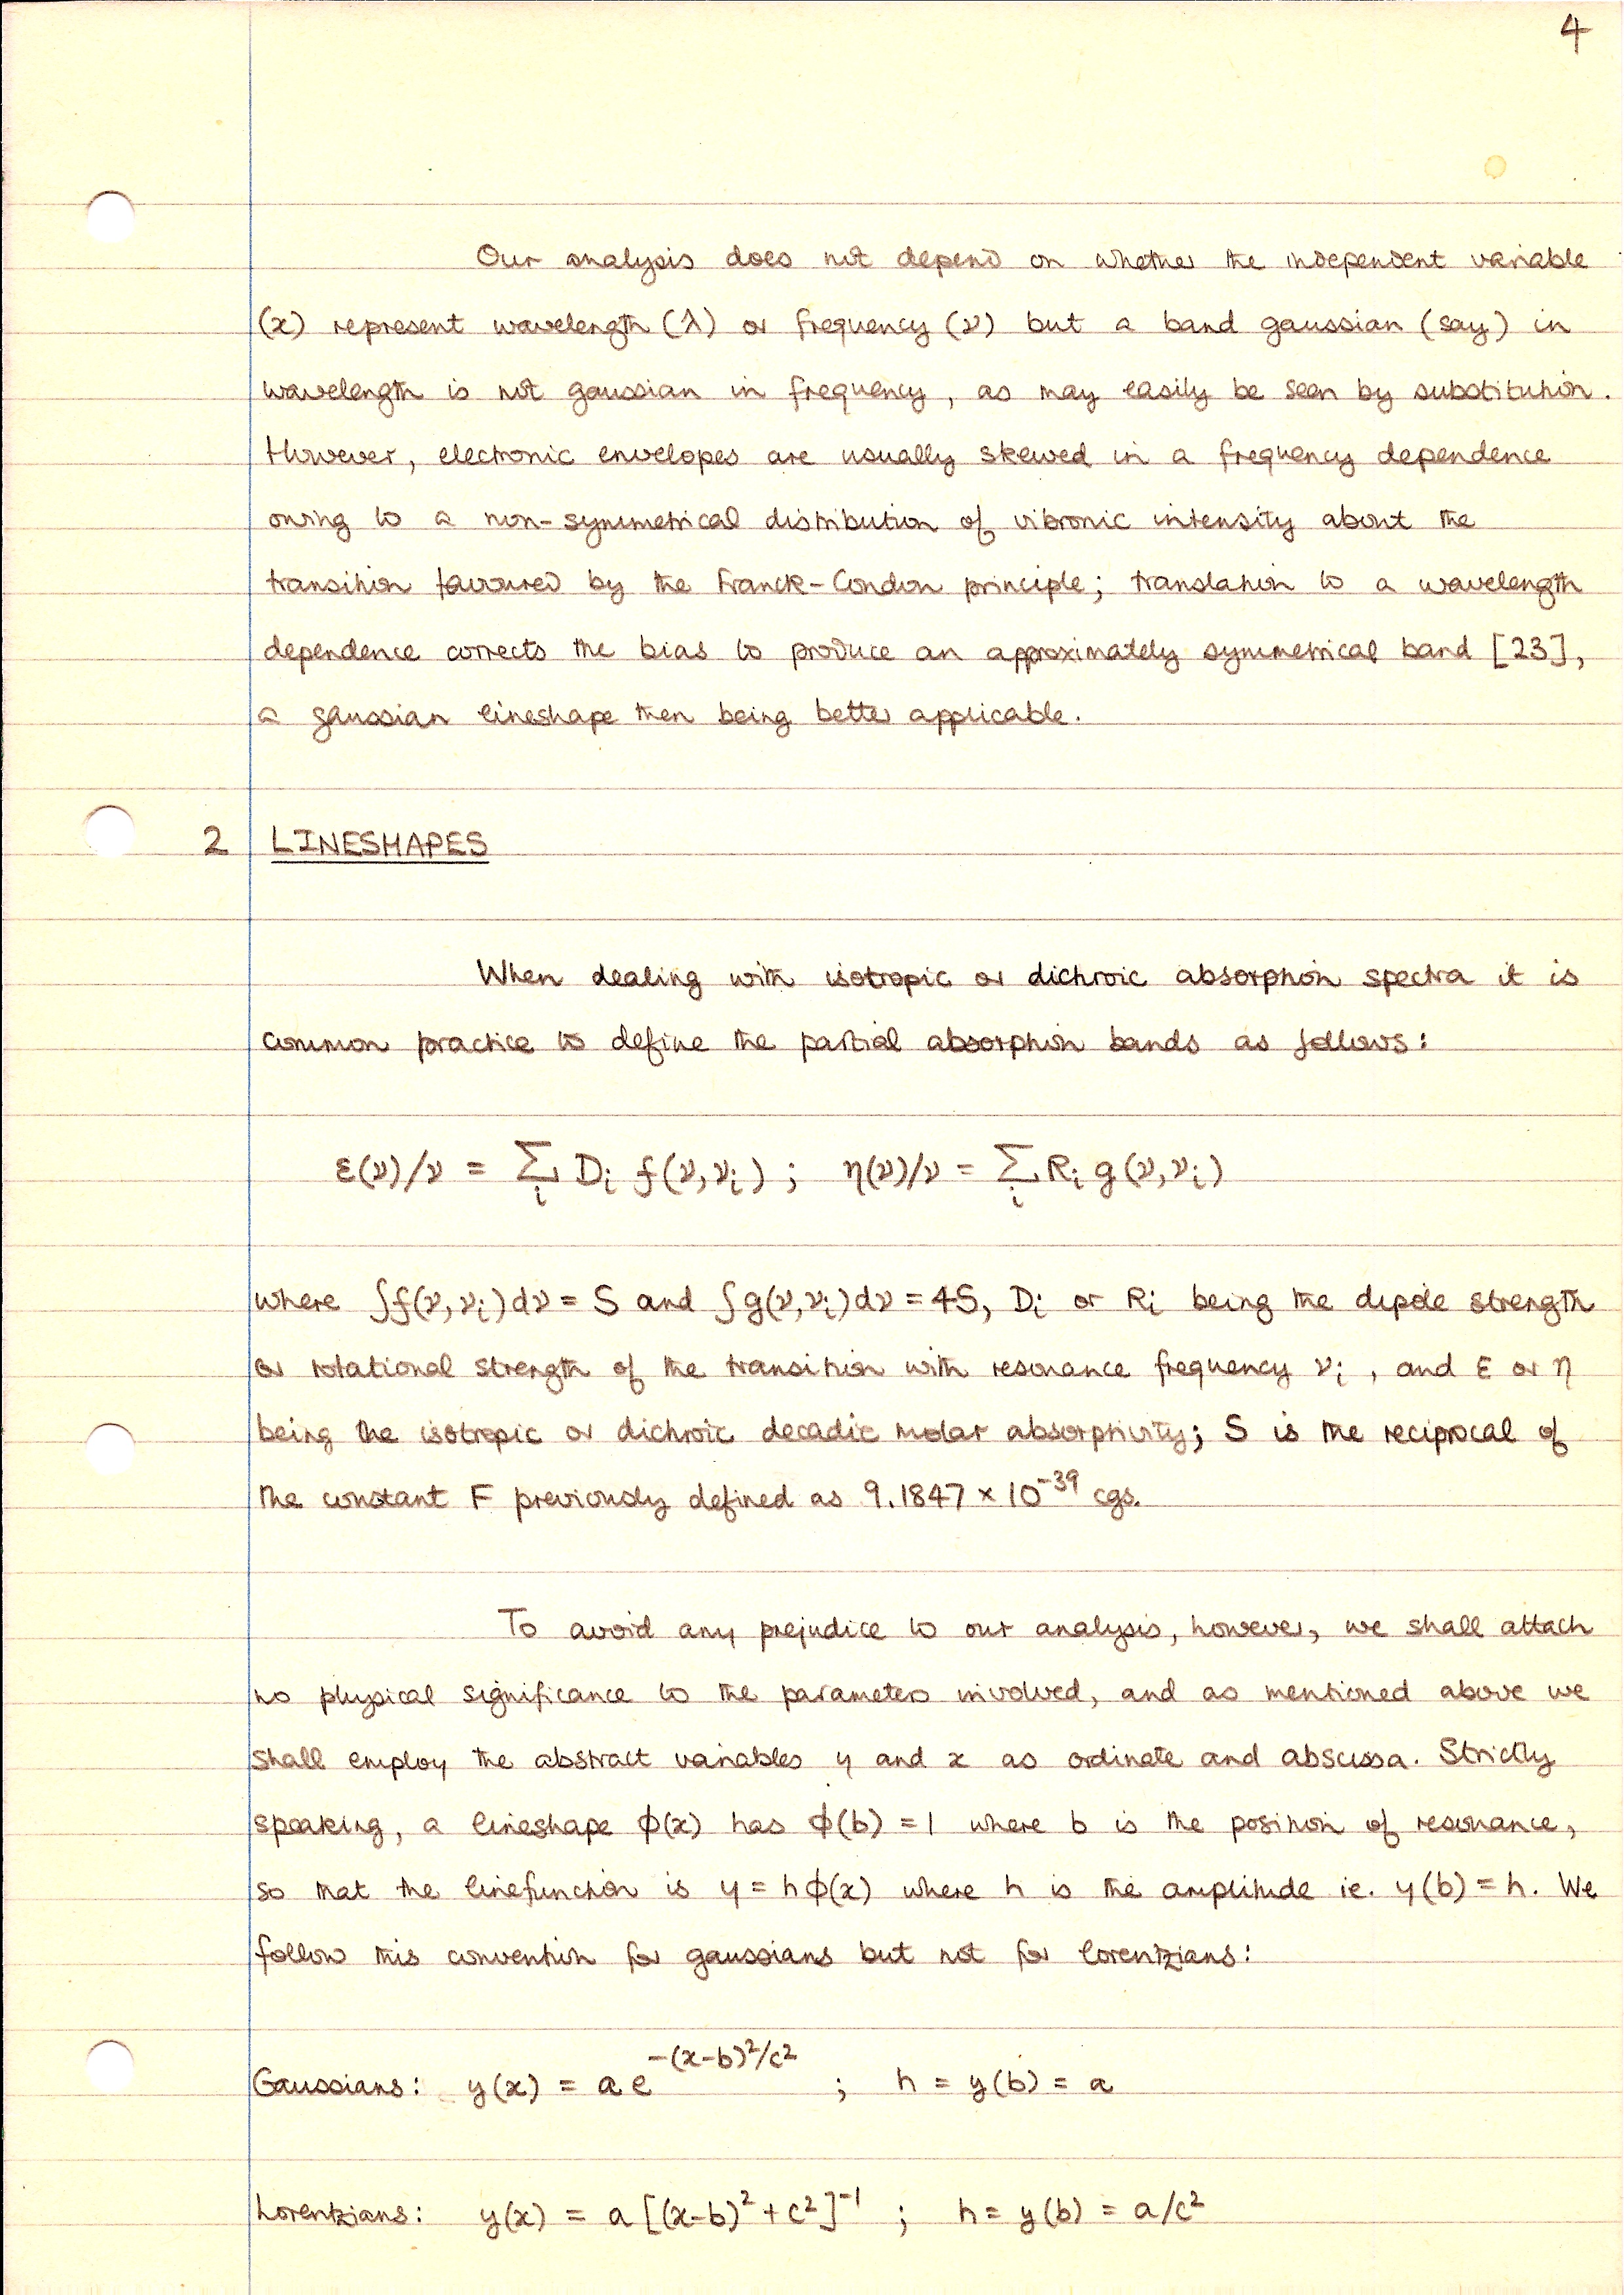 4
Our analysis does not depend on whether the independent variable
(x) represent wavelength (λ) or frequency (ν) but a band gaussian (say) in
wavelength is not gaussian in frequency, as may easily be seen by substitution.
However, electronic envelopes are usually skewed in a frequency dependence
owing to a non-symmetrical distribution of vibronic intensity about the
transition favoured by the Franck-Condon principle; translation to a wavelength
dependence corrects the bias to produce an approximately symmetrical band [23],
a gaussian lineshape then being better applicable.
2 LINESHAPES
When dealing with isotropic or dichroic absorption spectra it is
common practice to define the partial absorption bands as follows:
ε(ν)/ν = ∑ᵢ Dᵢ f(ν,νᵢ) ; η(ν)/ν = ∑ᵢ Rᵢ g(ν,νᵢ)
where ∫f(ν,νᵢ)dν = S and ∫g(ν,νᵢ)dν = 4S, Dᵢ or Rᵢ being the dipole strength
or rotational strength of the transition with resonance frequency νᵢ , and ε or η
being the isotropic or dichroic decadic molar absorptivity; S is the reciprocal of
the constant F previously defined as 9.1847 × 10⁻³⁹ cgs.
To avoid any prejudice to our analysis, however, we shall attach
no physical significance to the parameters involved, and as mentioned above we
shall employ the abstract variables y and x as ordinate and abscissa. Strictly
speaking, a lineshape ϕ(x) has ϕ(b) = 1 where b is the position of resonance,
so that the linefunction is y = hϕ(x) where h is the amplitude ie. y(b) = h. We
follow this convention for gaussians but not for lorentzians:
Gaussians: y(x) = a e^{-(x-b)²/c²} ; h = y(b) = a
Lorentzians: y(x) = a [(x-b)² + c²]⁻¹ ; h = y(b) = a/c²